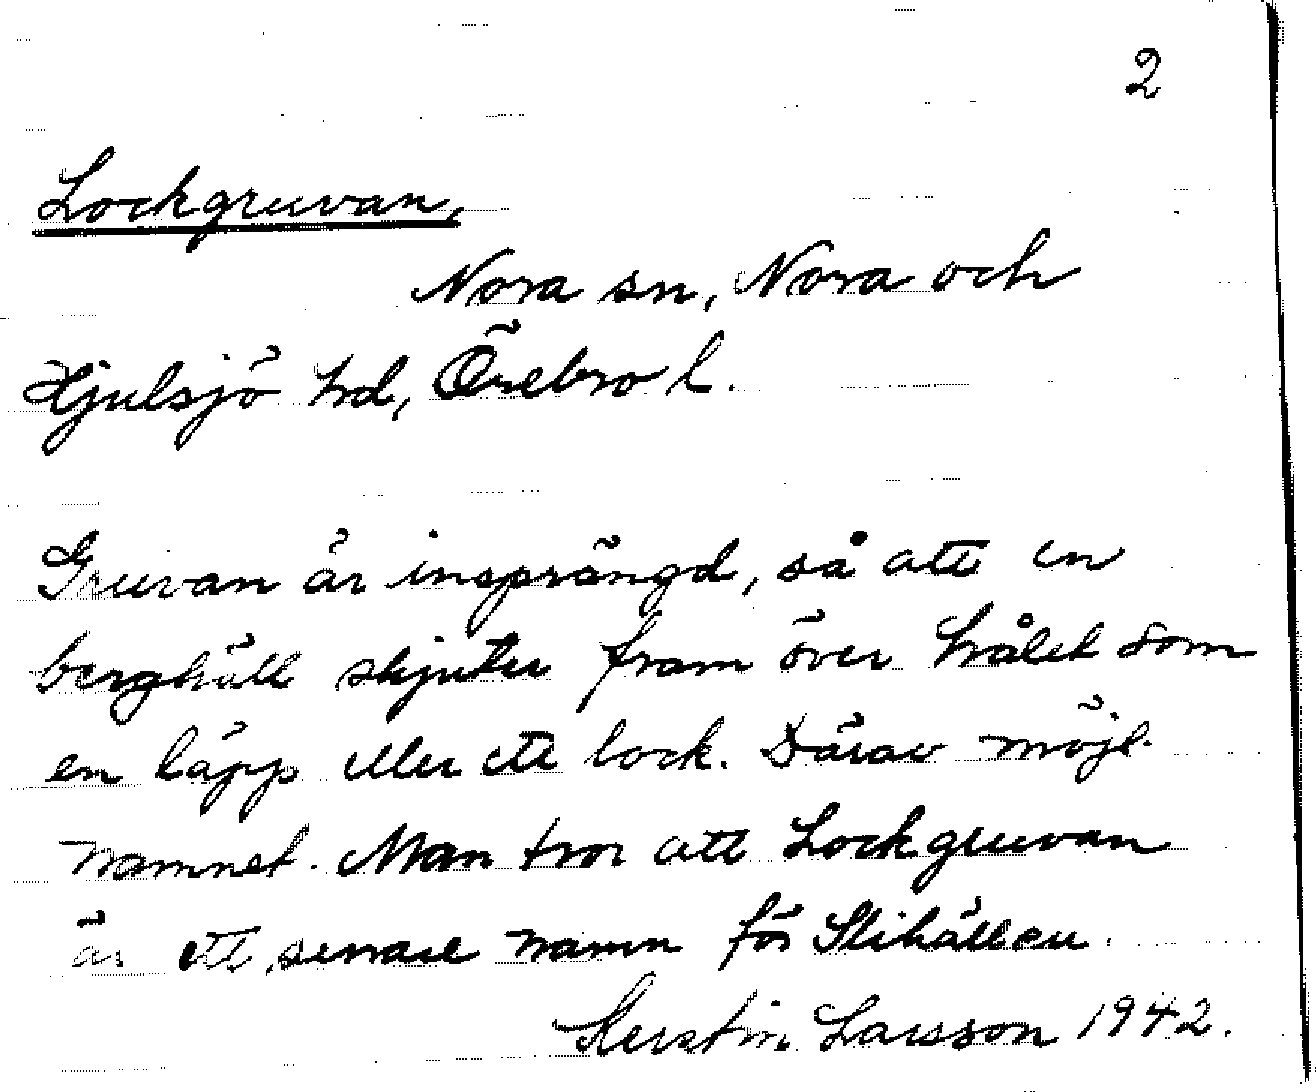 2
Lockgruvan,
Nora sn, Nora och
Hjulsjö hd, Örebro l.
Gruvan är insprängd, så att en
berghäll skjuter fram över hålet som
en läpp eller ett lock. Därav möjl.
namnet. Man tror att Lockgruvan
är ett senare namn för Slihällen.
Kerstin Larsson 1942.